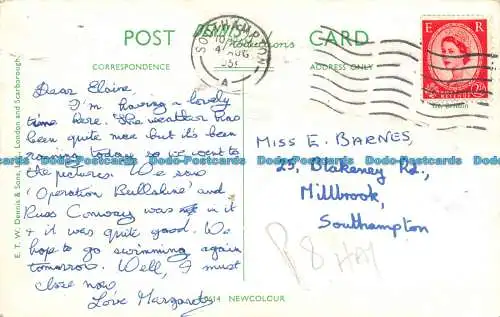 POST DENNIS CARD
Productions
CORRESPONDENCE
ADDRESS ONLY
SOUTHAMPTON
4 AUG
A
E R
2½D
Dear Elaine,
I'm having a lovely
time here. The weather has
been quite nice but it's been
raining today so we went to
the pictures. We saw
'Operation Bullshine' and
Russ Conway was in it
+ it was quite good. We
hope to go swimming again
tomorrow. Well, I must
close now.
Love Margaret
MISS E. BARNES,
25, Blakeney Rd.,
Millbrook,
Southampton
E. T. W. Dennis & Sons, Ltd., London and Scarborough.
NEWCOLOUR
Dodo-Postcards Dodo-Postcards Dodo-Postcards Dodo-Postcards